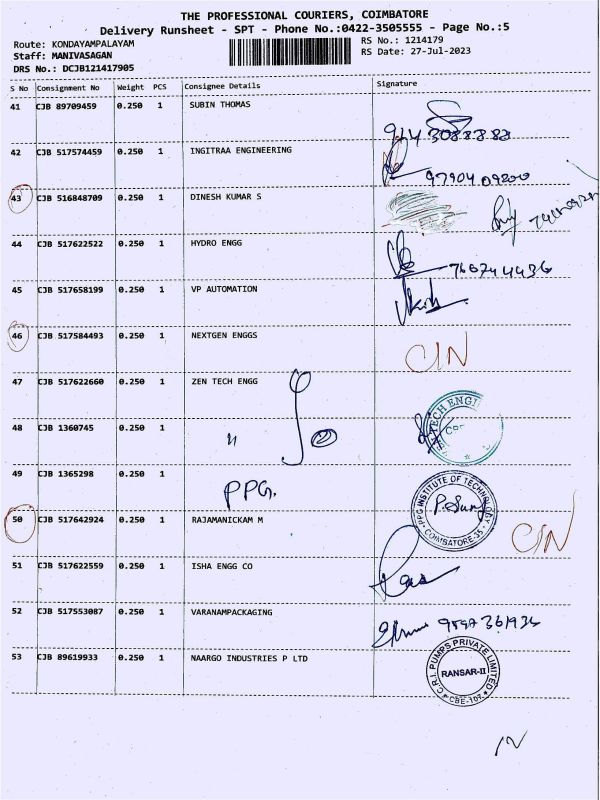 THE PROFESSIONAL COURIERS, COIMBATORE
Delivery Runsheet - SPT - Phone No.:0422-3505555 - Page No.:5
Route: KONDAYAMPALAYAM RS No.: 1214179
Staff: MANIVASAGAN RS Date: 27-Jul-2023
DRS No.: DCJB121417905
S No Consignment No Weight PCS Consignee Details Signature
41 CJB 89709459 0.250 1 SUBIN THOMAS
42 CJB 517574459 0.250 1 INGITRAA ENGINEERING
97904 09200
43 CJB 516848709 0.250 1 DINESH KUMAR S
44 CJB 517622522 0.250 1 HYDRO ENGG
45 CJB 517658199 0.250 1 VP AUTOMATION
46 CJB 517584493 0.250 1 NEXTGEN ENGGS
CIN
47 CJB 517622660 0.250 1 ZEN TECH ENGG
48 CJB 1360745 0.250 1 "
49 CJB 1365298 0.250 1
PPG.
PPG INSTITUTE OF TECHNOLOGY
COIMBATORE-35
50 CJB 517642924 0.250 1 RAJAMANICKAM M
CIN
51 CJB 517622559 0.250 1 ISHA ENGG CO
52 CJB 517553087 0.250 1 VARANAMPACKAGING
53 CJB 89619933 0.250 1 NAARGO INDUSTRIES P LTD
C.R.I. PUMPS PRIVATE LIMITED
RANSAR-II
CBE-107